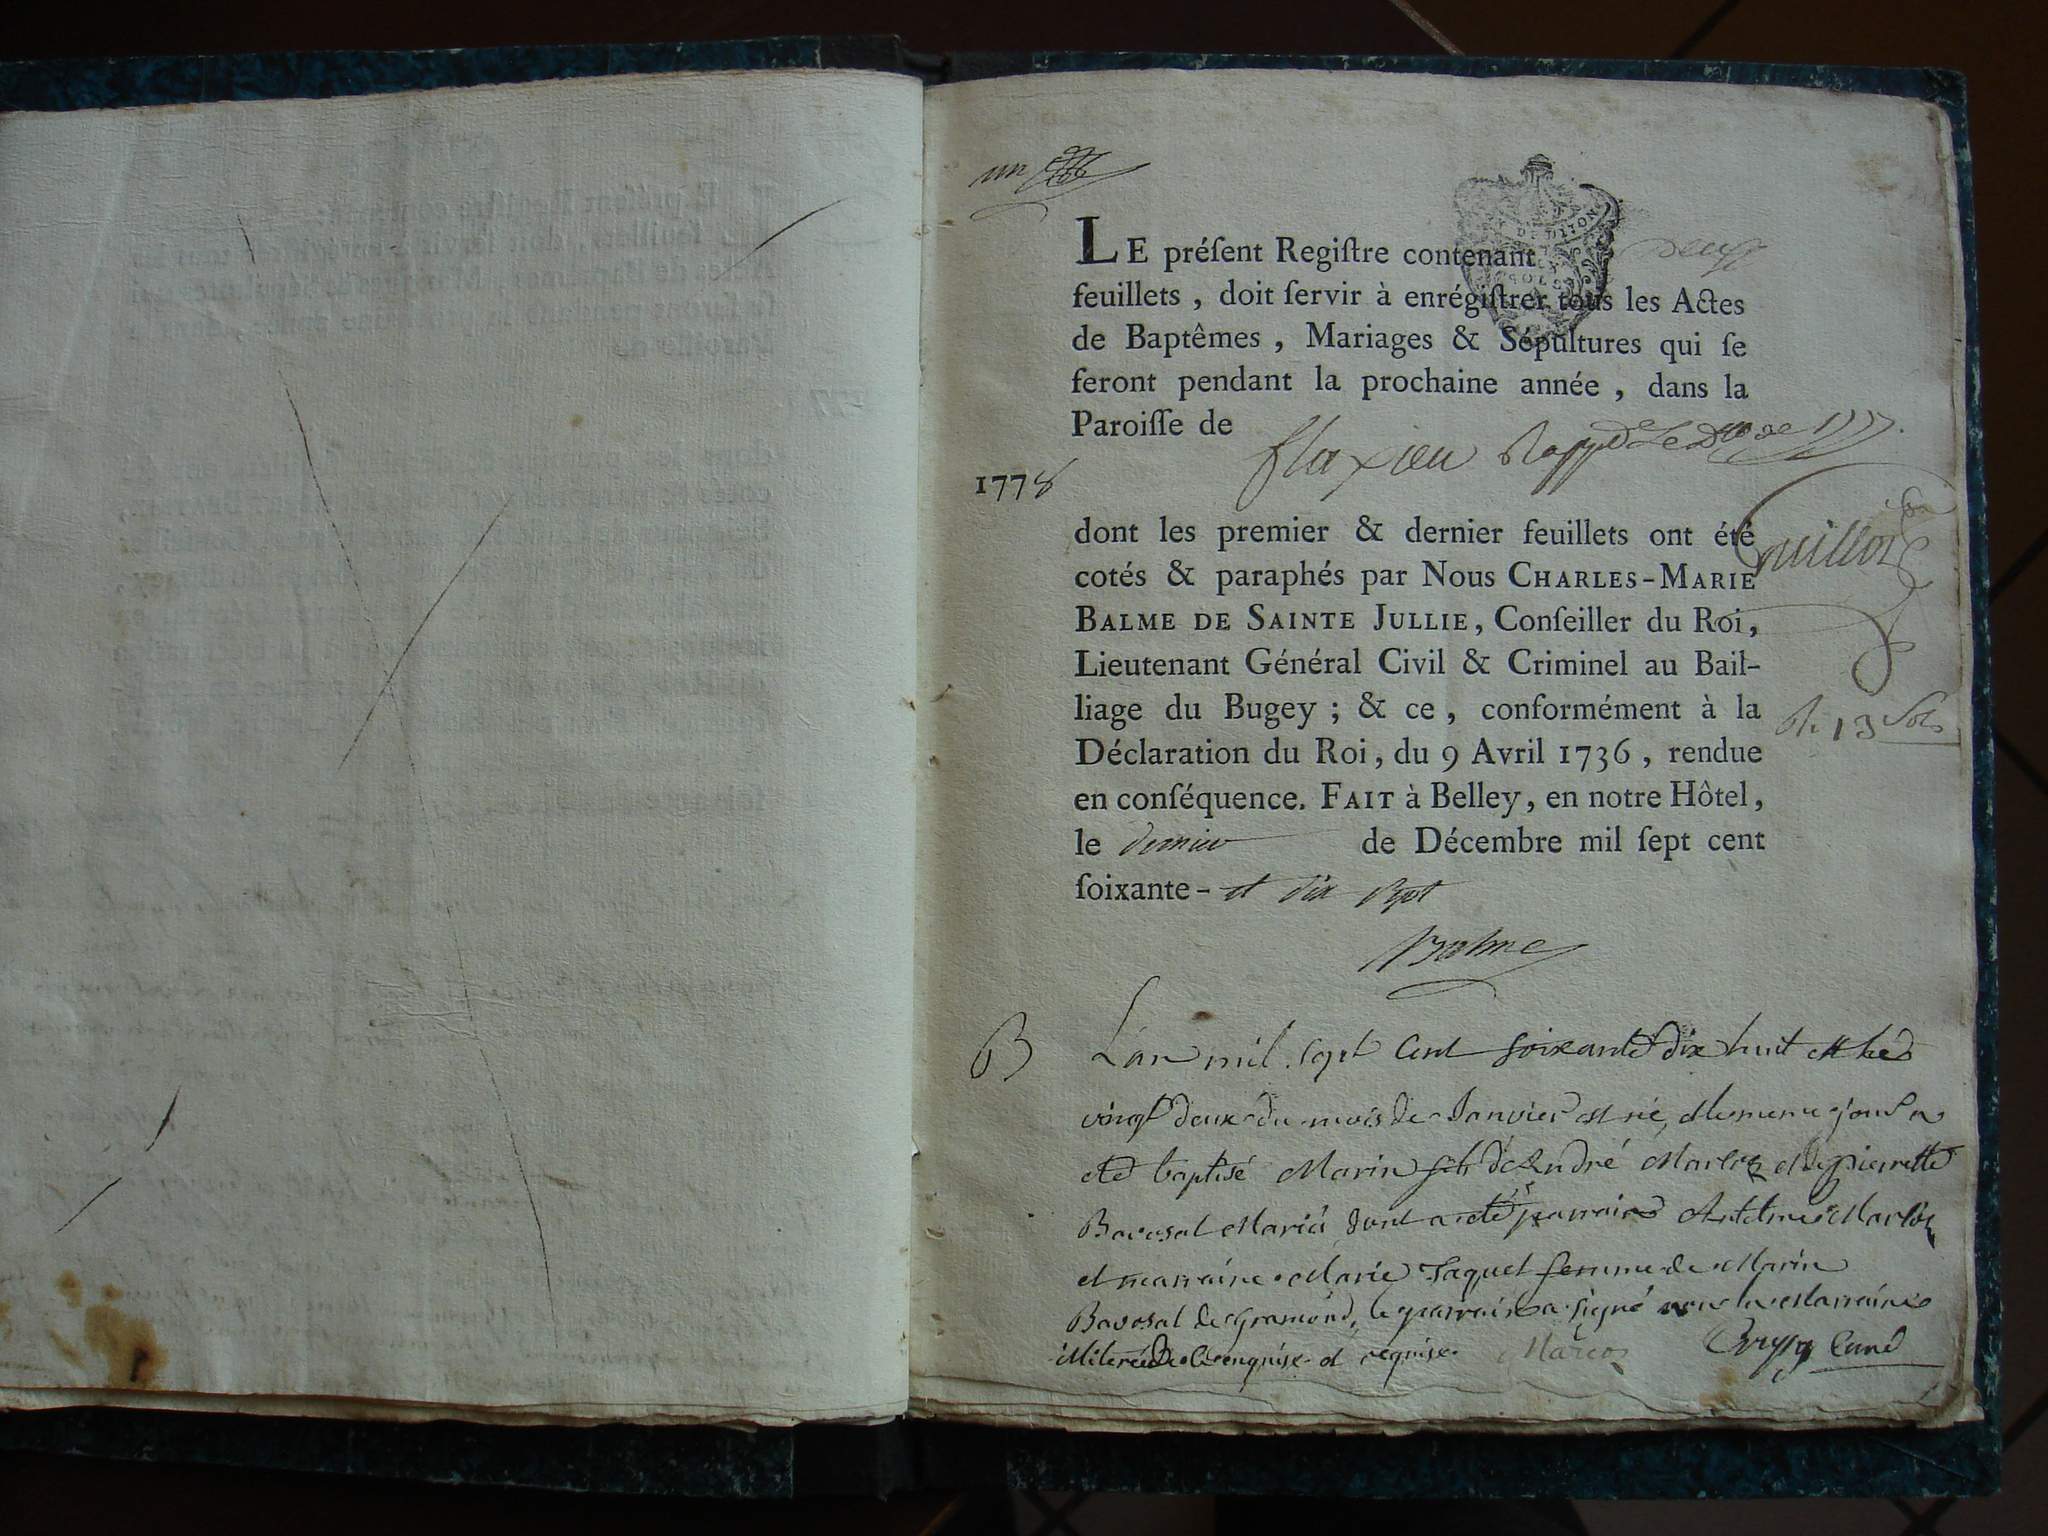 un
LE préſent Regiſtre contenant deux
feuillets, doit ſervir à enrégiſtrer tous les Actes
de Baptêmes, Mariages & Sépultures qui ſe
feront pendant la prochaine année, dans la
Paroiſſe de flaxieu
1778
dont les premier & dernier feuillets ont été
cotés & paraphés par Nous CHARLES-MARIE
BALME DE SAINTE JULLIE, Conſeiller du Roi,
Lieutenant Général Civil & Criminel au Bail-
liage du Bugey; & ce, conformément à la
13 Sols
Déclaration du Roi, du 9 Avril 1736, rendue
en conſéquence. FAIT à Belley, en notre Hôtel,
le dernier de Décembre mil ſept cent
ſoixante- et dix sept
Balme
B
L'an mil sept cent soixante dix huit et le
vingt deux du mois de Janvier est né, et le meme jour a
eté baptisé Marin fils d'André Marcoz et de pierrette
Bavosat Mariés, dont a eté parrain Antelme Marcoz
et marraine Marie Jaquet femme de Marin
Bavosat de Gramond, le parrain a signé non la Marraine
illiterée de ce enquise et requise. Marcoz Curé